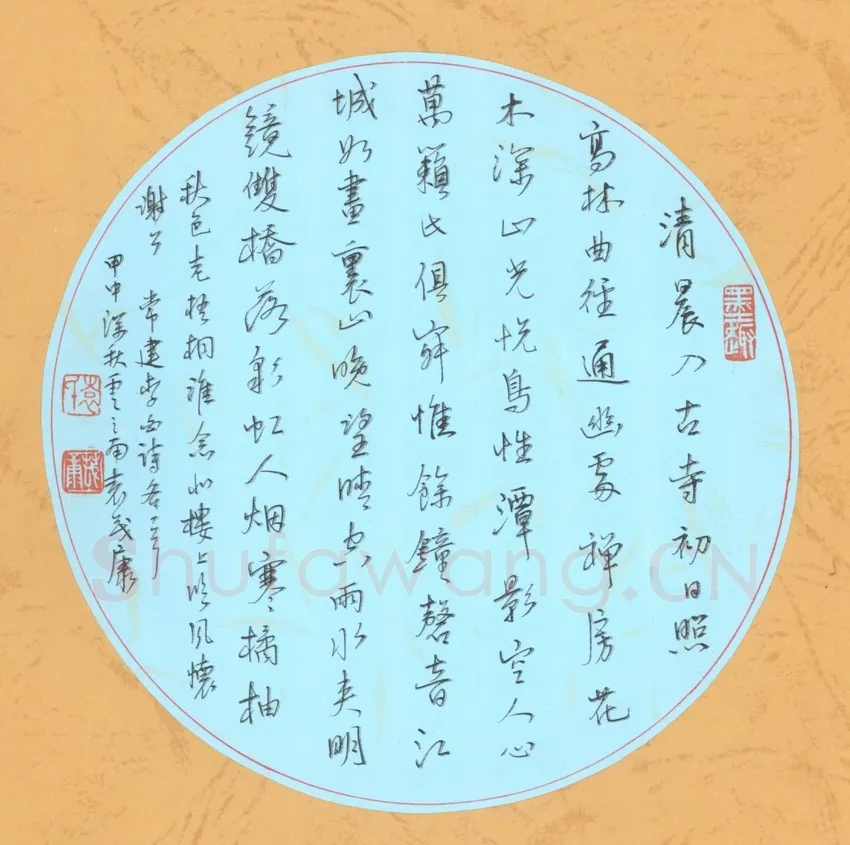 清晨入古寺初日照
高林曲径通幽處禅房花
木深山光悦鳥性潭影空人心
萬籟此俱寂惟餘鐘磬音江
城如畫裏山晚望晴空兩水夹明
鏡雙橋落彩虹人烟寒橘柚
秋色老梧桐誰念北樓上临风懷
謝公 常建李白诗各一首
甲申深秋雲之南袁茂康
墨趣
袁
茂康
Shufawang.CN